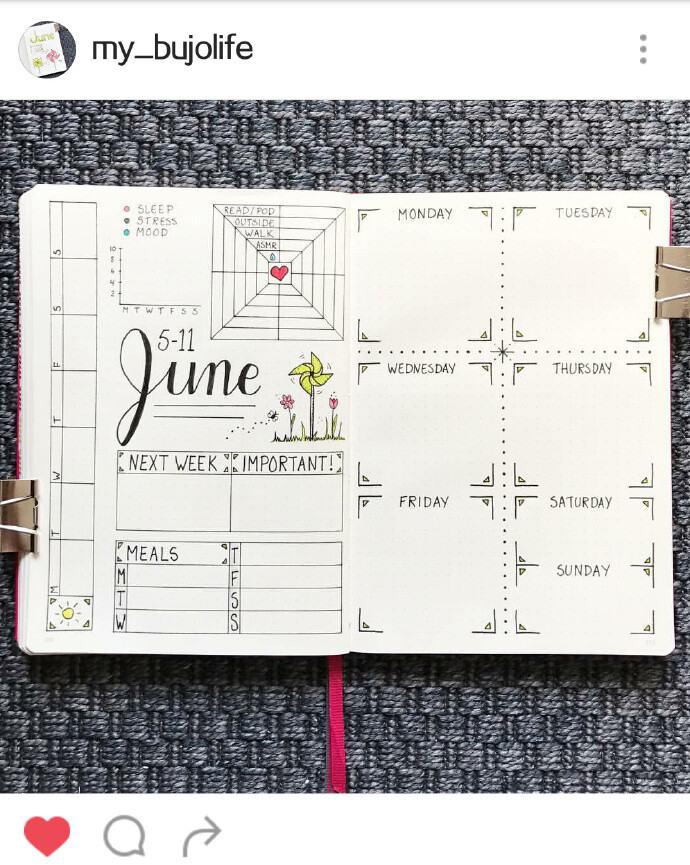 my_bujolife
June
S
S
F
T
W
T
M
SLEEP
STRESS
MOOD
10
8
6
4
2
M T W T F S S
READ/POD
OUTSIDE
WALK
ASMR
5-11
June
NEXT WEEK
IMPORTANT!
MEALS
M
T
W
T
F
S
S
MONDAY
TUESDAY
WEDNESDAY
THURSDAY
FRIDAY
SATURDAY
SUNDAY